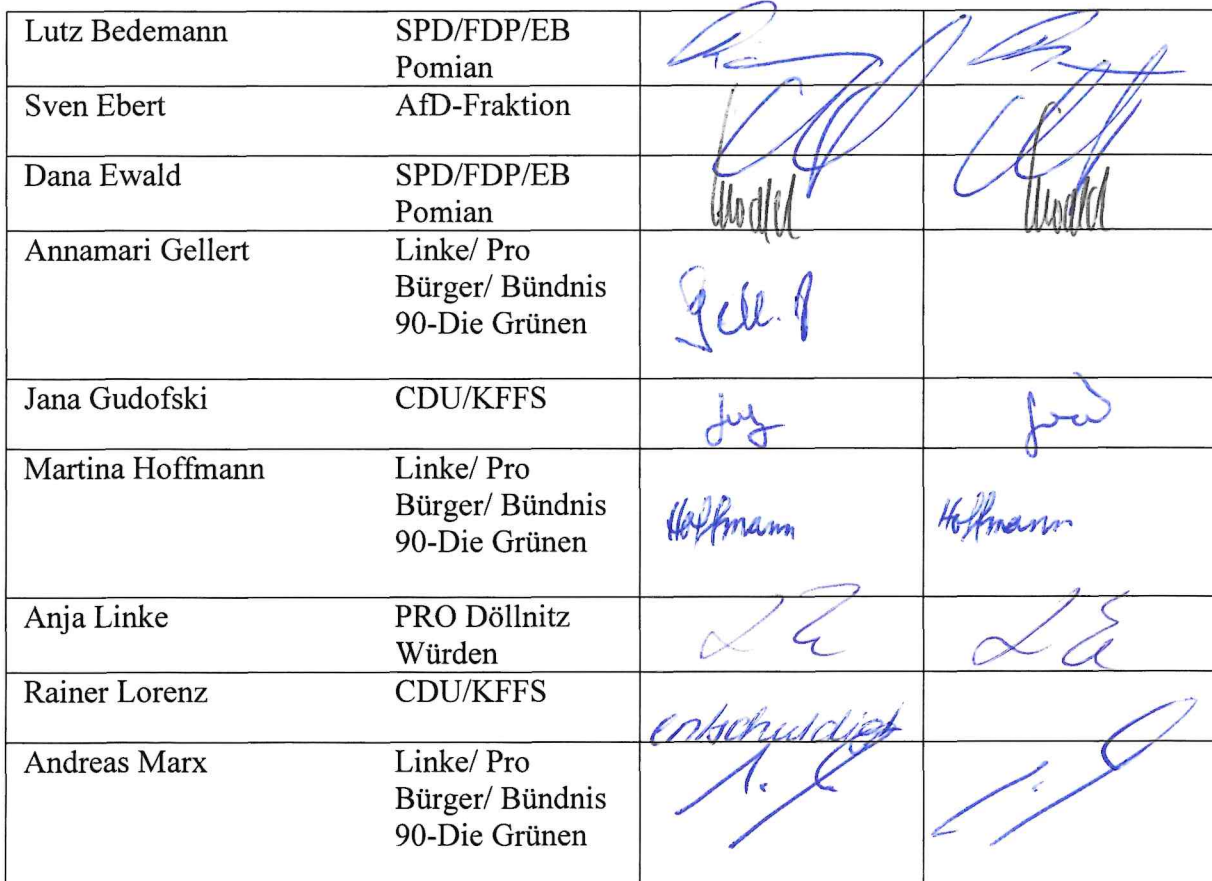 Lutz Bedemann SPD/FDP/EB
Pomian
Sven Ebert AfD-Fraktion
Dana Ewald SPD/FDP/EB
Pomian
Annamari Gellert Linke/ Pro
Bürger/ Bündnis
90-Die Grünen
Jana Gudofski CDU/KFFS
Martina Hoffmann Linke/ Pro
Bürger/ Bündnis
90-Die Grünen
Hoffmann Hoffmann
Anja Linke PRO Döllnitz
Würden
Rainer Lorenz CDU/KFFS
entschuldigt
Andreas Marx Linke/ Pro
Bürger/ Bündnis
90-Die Grünen